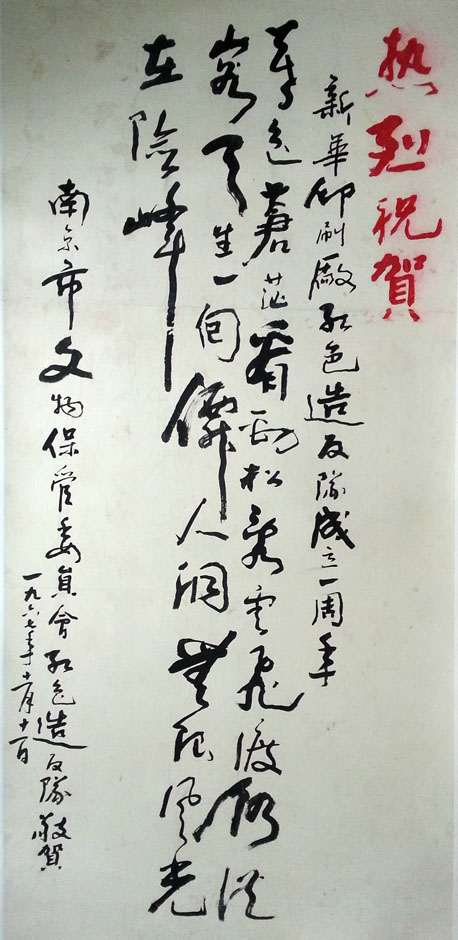 热烈祝賀
新華印刷廠红色造反隊成立一周年
暮色蒼茫看劲松亂雲飛渡仍從
容天生一個僊人洞無限風光
在險峰
南京市文物保管委員會红色造反隊敬賀
一九六七年十一月十一日